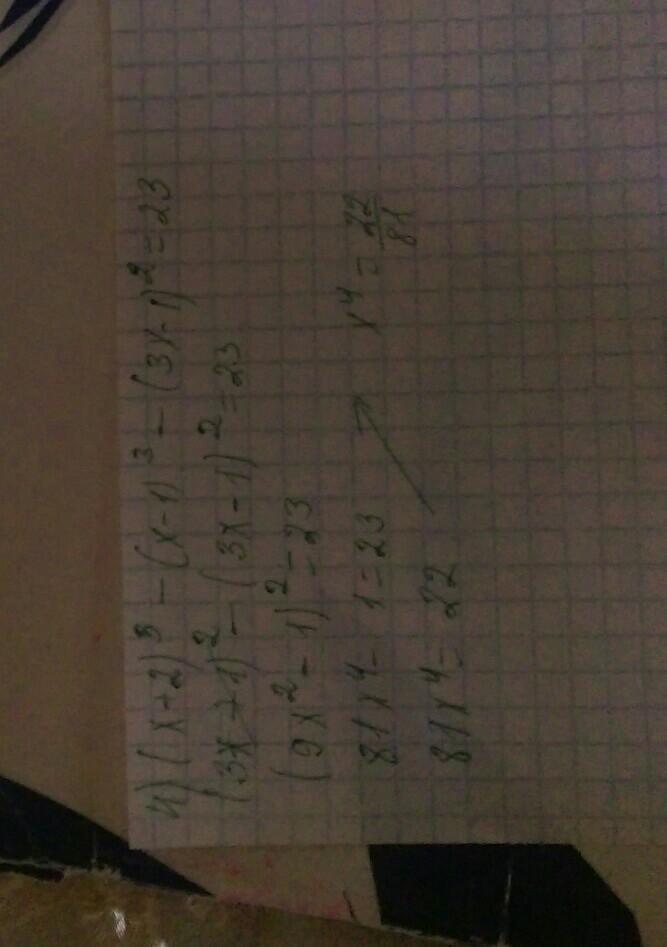 4) (x+2)³ - (x-1)³ - (3x-1)² = 23
(3x+1)² - (3x-1)² = 23
(9x² - 1)² = 23
81x⁴ - 1 = 23
81x⁴ = 22 → x⁴ = 22/81